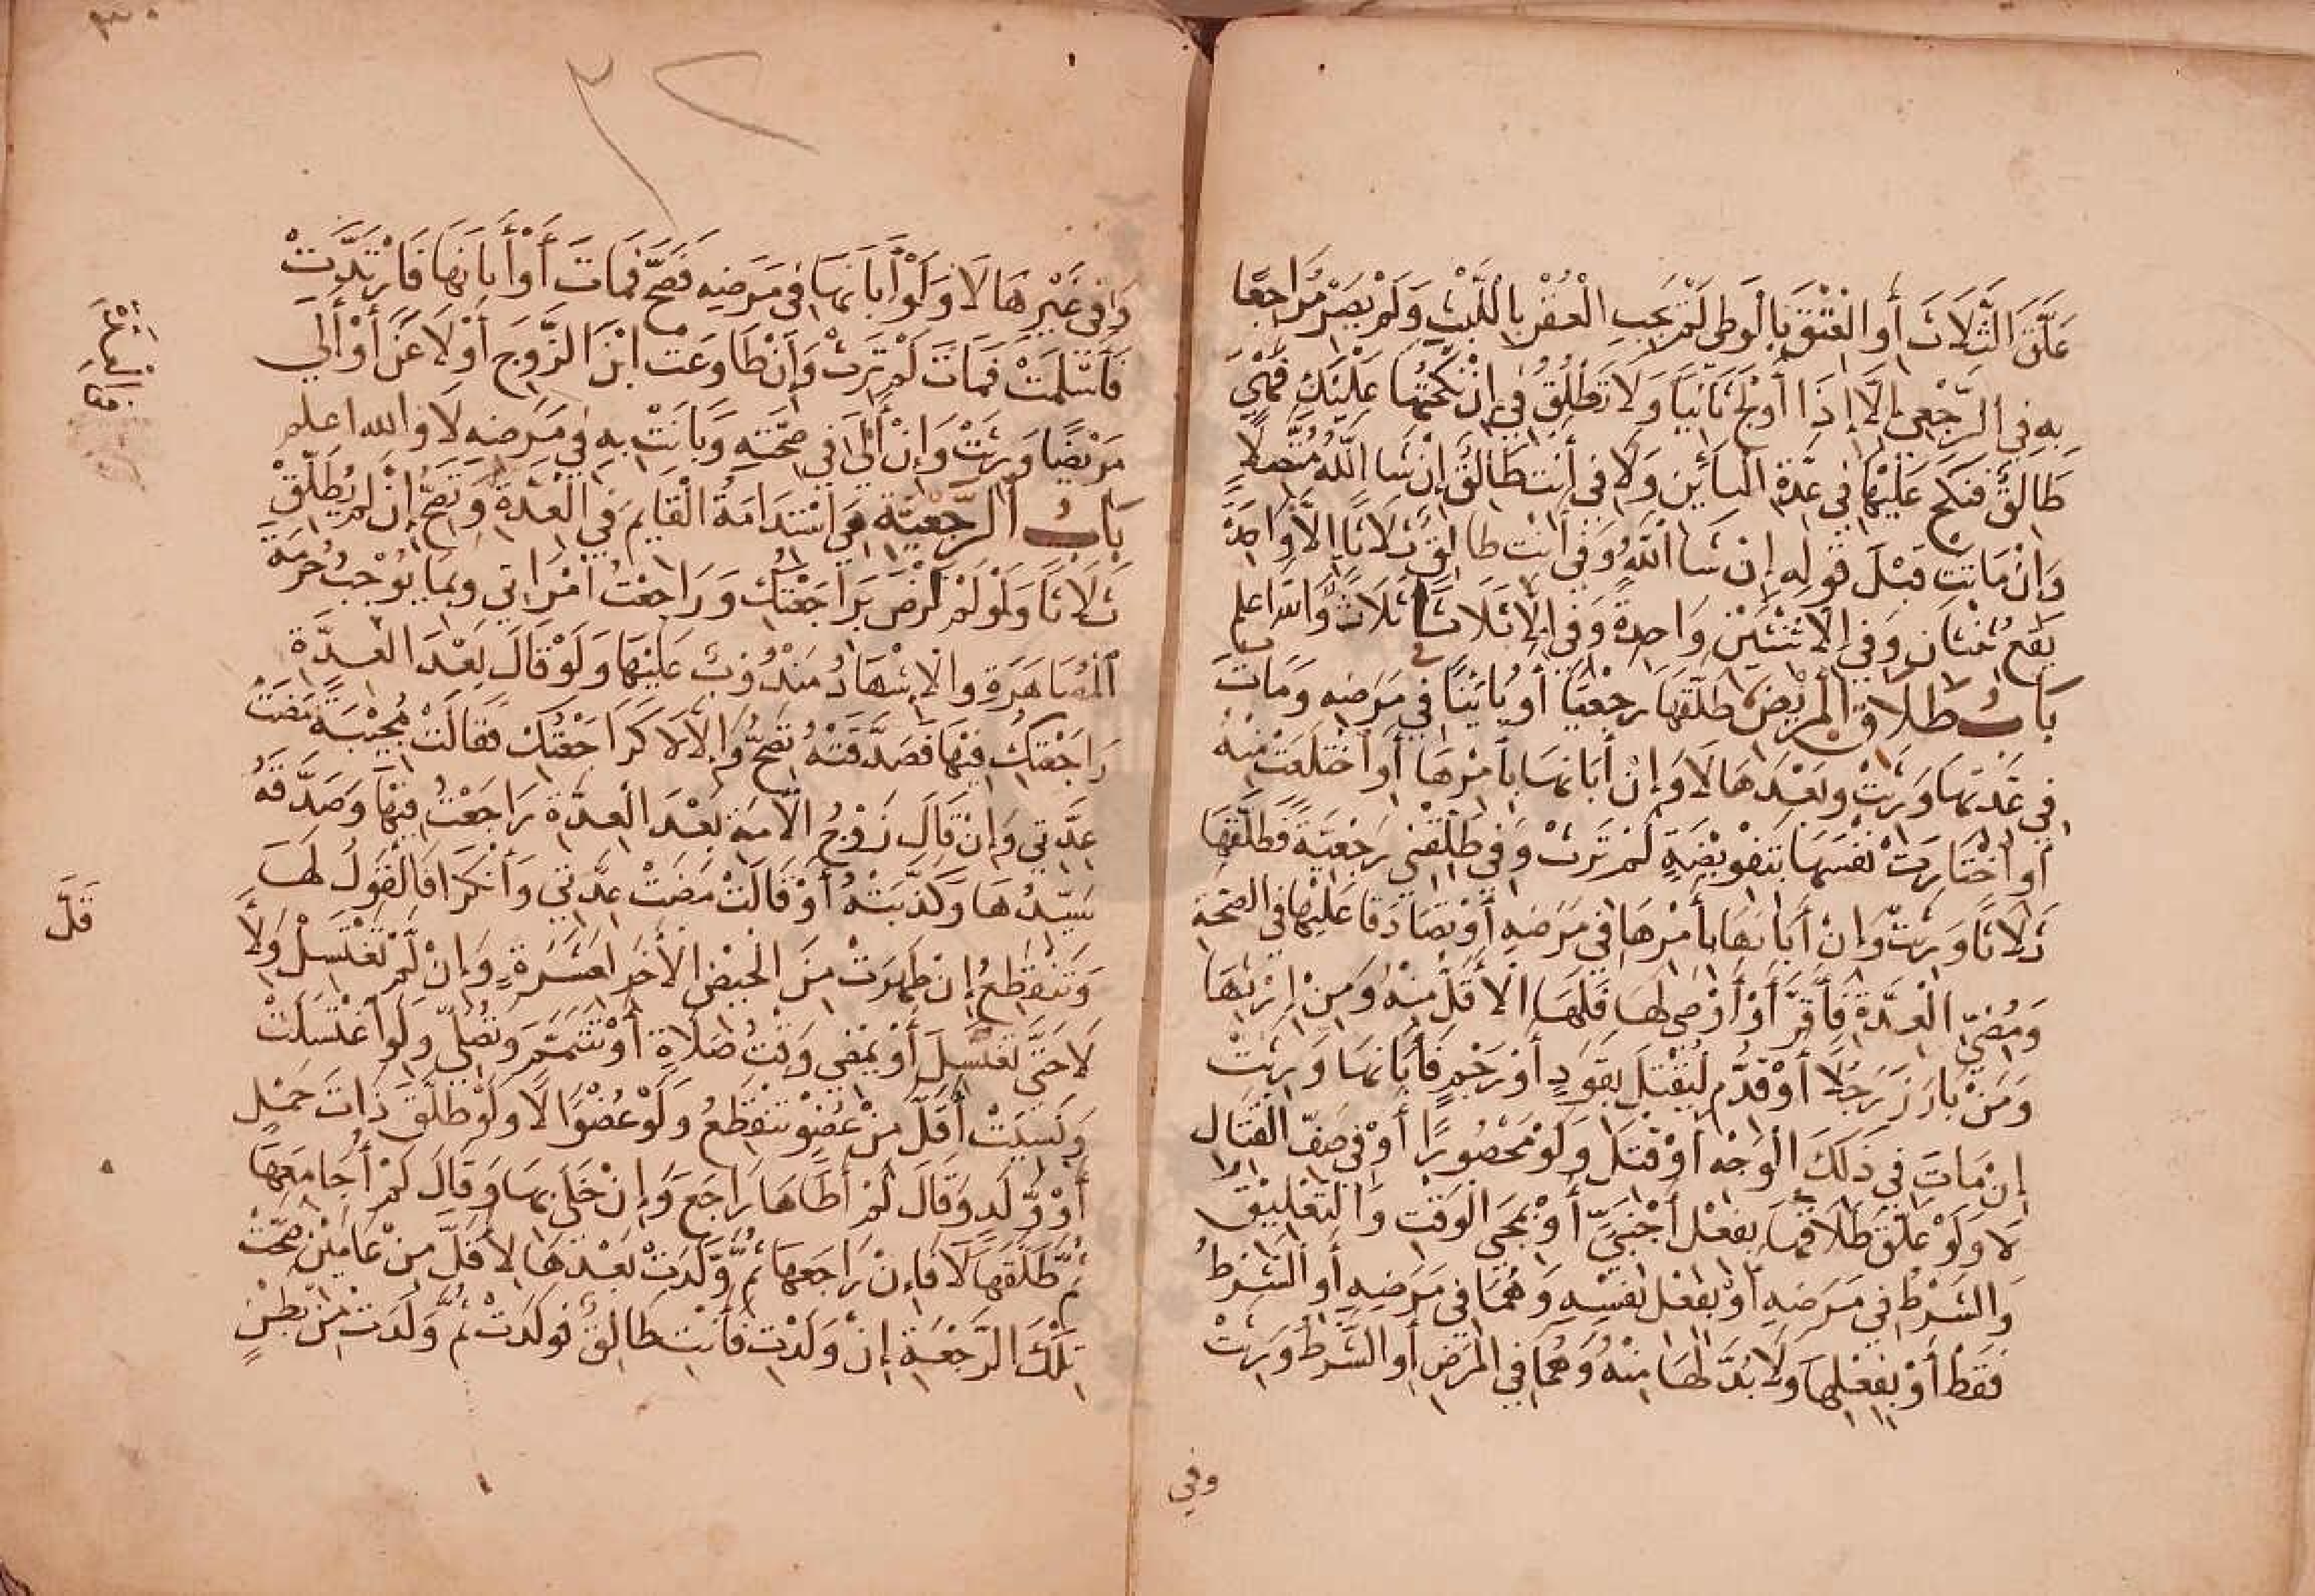 عَلَّقَ الثَّلَاثَ أَوِ الْعِتْقَ بِالْوَطْىِ لَمْ يَجِبِ الْعُقْرُ بِاللَّبْثِ وَلَمْ يَصِرْ مُرَاجِعًا
بِهِ فِي الرَّجْعِيِّ إِلَّا إِذَا أَوْلَجَ ثَانِيًا وَلَا تَطْلُقُ فِي إِنْ نَكَحْتُهَا عَلَيْكِ فَهِيَ
طَالِقٌ فَنَكَحَ عَلَيْهَا فِي عِدَّةِ الْبَائِنِ وَلَا فِي أَنْتِ طَالِقٌ إِنْ شَا اللَّهُ مُتَّصِلًا
وَإِنْ مَاتَتْ قَبْلَ قَوْلِهِ إِنْ شَا اللَّهُ وَفِي أَنْتِ طَالِقٌ ثَلَاثًا إِلَّا وَاحِدَةً
يَقَعُ ثِنْتَانِ وَفِي إِلَّا ثِنْتَيْنِ وَاحِدَةٌ وَفِي إِلَّا ثَلَاثًا ثَلَاثٌ وَاللَّهُ اعلم
بَابُ طَلَاقِ الْمَرِيضِ طَلَّقَهَا رَجْعِيًّا أَوْ بَائِنًا فِي مَرَضِهِ وَمَاتَ
فِي عِدَّتِهَا وَرِثَتْ وَبَعْدَهَا لَا وَإِنْ أَبَانَهَا بِأَمْرِهَا أَوِ اخْتَلَعَتْ مِنْهُ
أَوِ اخْتَارَتْ نَفْسَهَا بِتَفْوِيضِهِ لَمْ تَرِثْ وَفِي طَلِّقْنِي رَجْعِيَّةً فَطَلَّقَهَا
ثَلَاثًا وَرِثَتْ وَإِنْ أَبَانَهَا بِأَمْرِهَا فِي مَرَضِهِ أَوْ تَصَادَقَا عَلَيْهَا فِي الصِّحَّةِ
وَمُضِيِّ الْعِدَّةِ فَأَقَرَّ أَوْ أَوْصَى لَهَا فَلَهَا الْأَقَلُّ مِنْهُ وَمِنْ إِرْثِهَا
وَمَنْ بَارَزَ رَجُلًا أَوْ قُدِّمَ لِيُقْتَلَ بِقَوَدٍ أَوْ رَجْمٍ فَأَبَانَهَا وَرِثَتْ
إِنْ مَاتَ فِي ذَلِكَ الْوَجْهِ أَوْ قُتِلَ وَلَوْ مَحْصُورًا أَوْ فِي صَفِّ الْقِتَالِ
لَا وَلَوْ عَلَّقَ طَلَاقَهَا بِفِعْلِ أَجْنَبِيٍّ أَوْ بِمَجِي الْوَقْتِ وَالتَّعْلِيقُ
وَالشَّرْطُ فِي مَرَضِهِ أَوْ بِفِعْلِ نَفْسِهِ وَهُمَا فِي مَرَضِهِ أَوِ الشَّرْطُ
فَقَطْ أَوْ بِفِعْلِهَا وَلَا بُدَّ لَهَا مِنْهُ وَهُمَا فِي الْمَرَضِ أَوِ الشَّرْطُ وَرِثَتْ
وفي
وَفِي غَيْرِهَا لَا وَلَوْ أَبَانَهَا فِي مَرَضِهِ فَصَحَّ فَمَاتَ أَوْ أَبَانَهَا فَارْتَدَّتْ
فَأَسْلَمَتْ فَمَاتَ لَمْ تَرِثْ وَإِنْ طَاوَعَتْ ابْنَ الزَّوْجِ أَوْ لَاعَنَ أَوْ أَلَى
مَرِيضًا وَرِثَتْ وَإِنْ أَلَى فِي صِحَّتِهِ وَبَانَتْ بِهِ فِي مَرَضِهِ لَا وَاللَّهُ اعلم
بَابُ الرَّجْعِيَّةِ هِيَ اسْتِدَامَةُ الْقَايِمِ فِي الْعِدَّةِ وَتَصِحُّ إِنْ لَمْ يُطَلِّقْ
ثَلَاثًا وَلَوْ لَمْ تَرْضَ بِرَاجَعْتُكِ وَرَاجَعْتُ امْرَاتِي وَبِمَا يُوجِبُ حُرْمَةَ
الْمُصَاهَرَةِ وَالْإِشْهَادُ مَنْدُوبٌ عَلَيْهَا وَلَوْ قَالَ بَعْدَ الْعِدَّةِ
رَاجَعْتُكِ فِيهَا فَصَدَّقَتْهُ تَصِحُّ وَإِلَّا لَا كَرَاجَعْتُكِ فَقَالَتْ مُجِيبَةً مَضَتْ
عِدَّتِي وَإِنْ قَالَ زَوْجُ الْأَمَةِ بَعْدَ الْعِدَّةِ رَاجَعْتُ فِيهَا وَصَدَّقَهُ
سَيِّدُهَا وَكَذَّبَتْهُ أَوْ قَالَتْ مَضَتْ عِدَّتِي وَأَنْكَرَا فَالْقَوْلُ لَهَا
وَتَنْقَطِعُ إِنْ طَهُرَتْ مِنَ الْحَيْضِ الْأَخِرِ لِعَشَرَةٍ وَإِنْ لَمْ تَغْتَسِلْ وَلِأَ
قَلَّ
لَا حَتَّى تَغْتَسِلَ أَوْ يَمْضِي وَقْتُ صَلَاةٍ أَوْ تَتَيَمَّمَ وَتُصَلِّي وَلَوِ اغْتَسَلَتْ
وَنَسِيَتْ أَقَلَّ مِنْ عُضْوٍ تَنْقَطِعُ وَلَوْ عُضْوًا لَا وَلَوْ طَلَّقَ ذَاتَ حَمْلٍ
أَوْ وَلَدٍ وَقَالَ لَمْ أَطَاهَا رَاجَعَ وَإِنْ خَلَى بِهَا وَقَالَ لَمْ أُجَامِعْهَا
ثُمَّ طَلَّقَهَا لَا فَإِنْ رَاجَعَهَا ثُمَّ وَلَدَتْ بَعْدَهَا لِأَقَلَّ مِنْ عَامَيْنِ صَحَّتْ
تِلْكَ الرَّجْعَةُ إِنْ وَلَدْتِ فَأَنْتِ طَالِقٌ فَوَلَدَتْ ثُمَّ وَلَدَتْ مِنْ بَطْنٍ